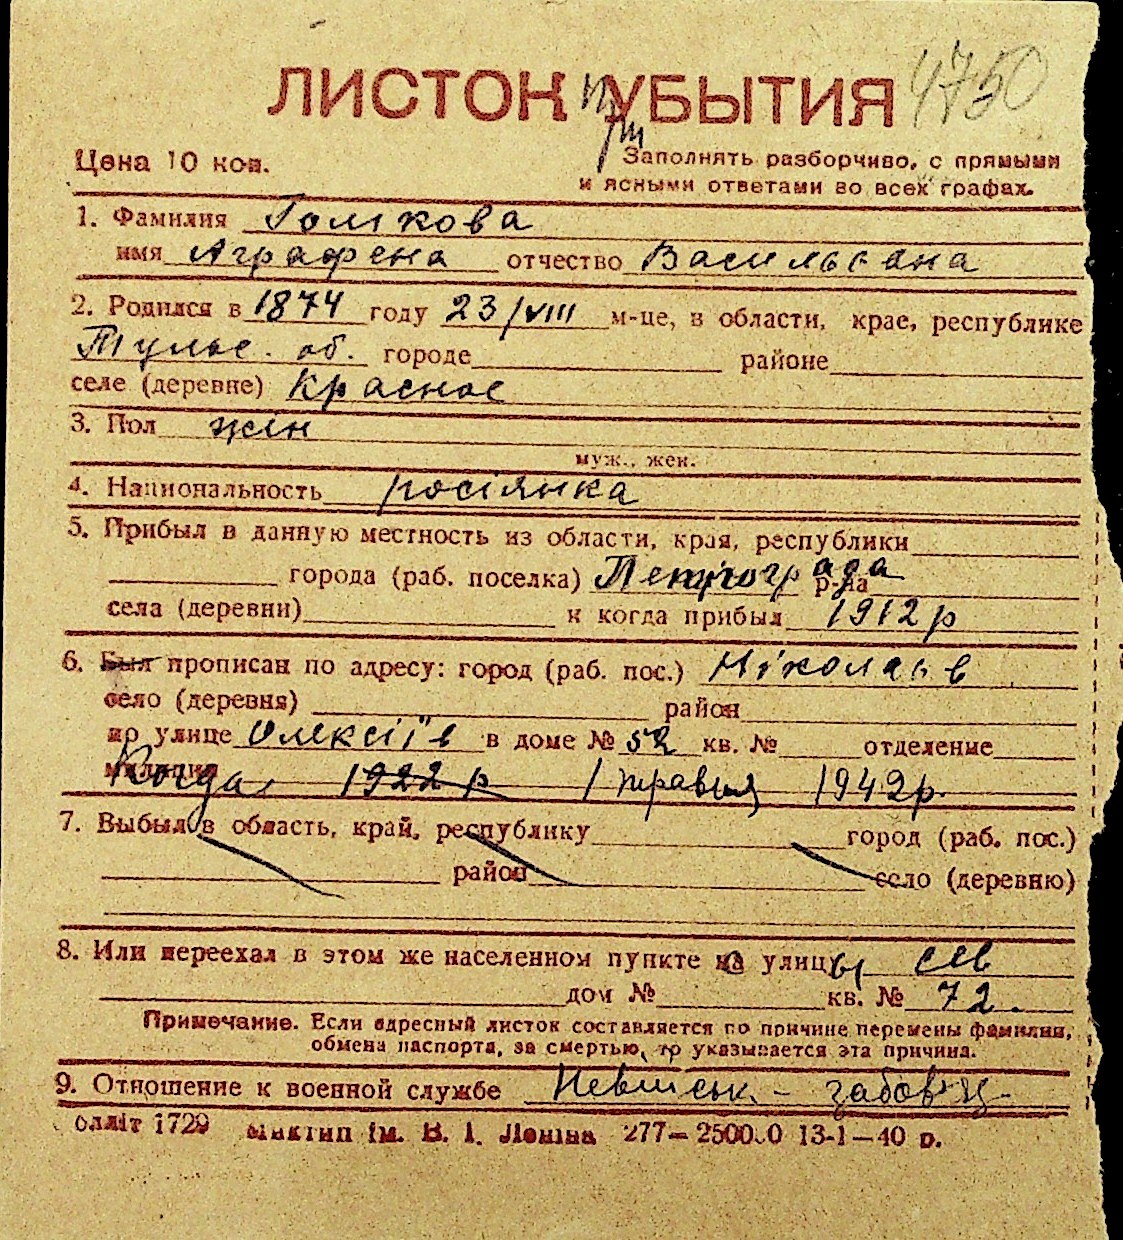 ЛИСТОК при УБЫТИЯ 4750
Цена 10 коп.
Заполнять разборчиво, с прямыми
и ясными ответами во всех графах.
1. Фамилия Голікова
имя Аграфена отчество Васильевна
2. Родился в 1874 году 23/VIII м-це, в области, крае, республике
Тульс. об. городе районе
селе (деревне) Красное
3. Пол жін
муж., жен.
4. Национальность росіянка
5. Прибыл в данную местность из области, края, республики
города (раб. поселка) Петрограда р-на
села (деревни) и когда прибыл 1912 р
6. Был прописан по адресу: город (раб. пос.) Ніколаєв
село (деревня) район
по улице Олексіїв в доме № 52 кв. № отделение
милиции Когда 1922 р 1 травня 1942 р.
7. Выбыл в область, край, республику город (раб. пос.)
район село (деревню)
8. Или переехал в этом же населенном пункте на улицы
дом № кв. № 72.
Примечание. Если адресный листок составляется по причине перемены фамилии,
обмена паспорта, за смертью, то указывается эта причина.
9. Отношение к военной службе Невійськ. - забов'яз.
олліт 1729 Миктип ім. В. І. Леніна 277—250000 13-1—40 р.